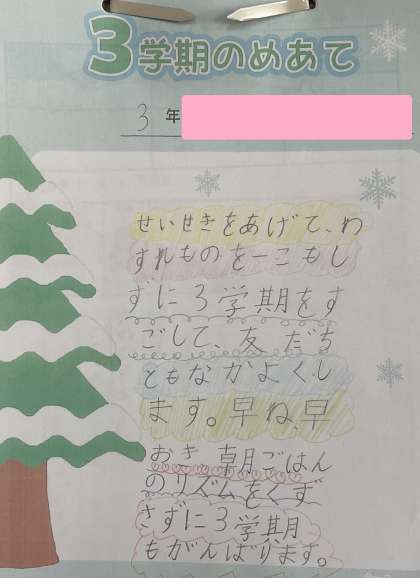 3学期のめあて
3年
せいせきをあげて、わ
すれものを一こもし
ずに3学期をす
ごして、友だち
ともなかよくし
ます。早ね、早
おき朝ごはん
のリズムをくず
さずに3学期
もがんばります。